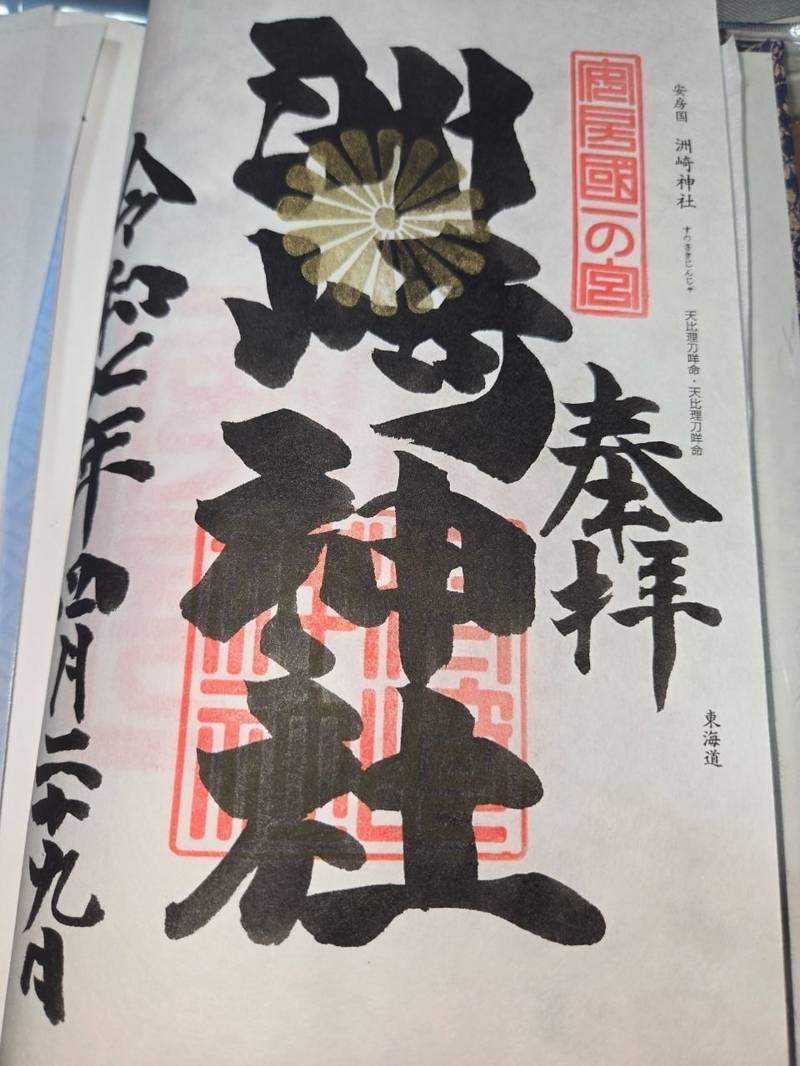 安房国 洲崎神社 すのさきじんじゃ 天比理刀咩命・天比理刀咩命
東海道
安房國一の宮
奉拝
洲崎神社
令和七年四月二十九日